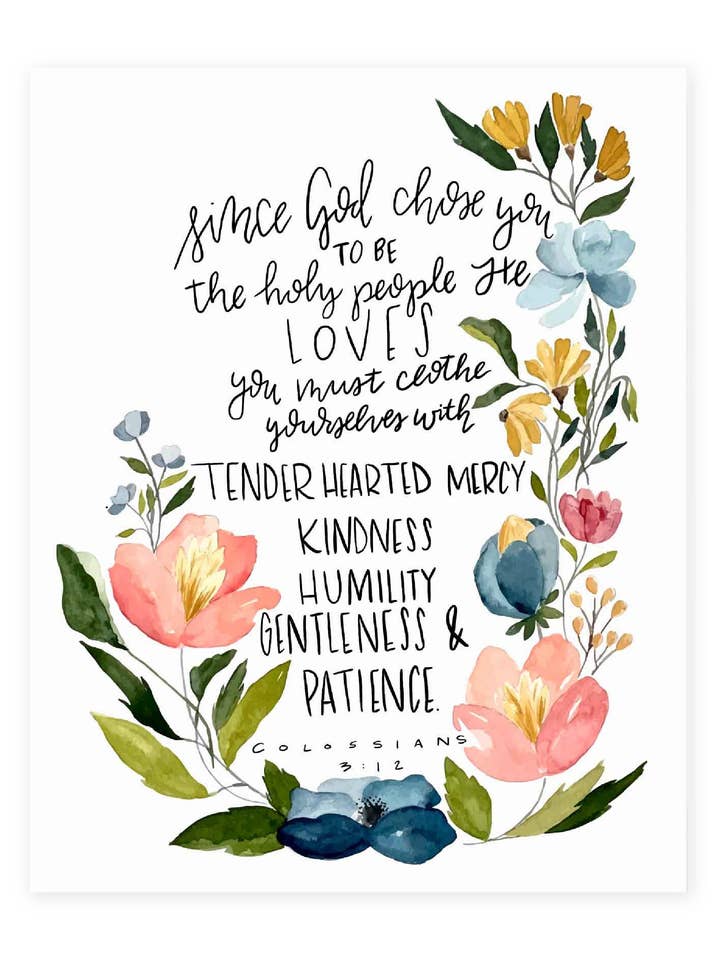 since God chose you
TO BE
the holy people He
LOVES
you must clothe
yourselves with
TENDER HEARTED MERCY
KINDNESS
HUMILITY
GENTLENESS &
PATIENCE.
COLOSSIANS
3:12